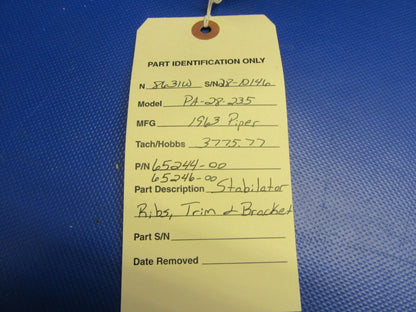 PART IDENTIFICATION ONLY
N 8631W S/N 28-10146
Model PA-28-235
MFG 1963 Piper
Tach/Hobbs 3775.77
P/N 65244-00
65246-00
Part Description Stabilator
Ribs, Trim & Bracket
Part S/N
Date Removed